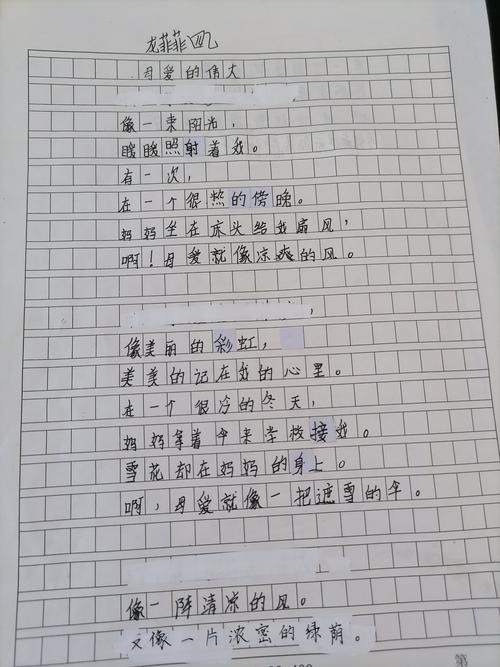 龙菲菲
母爱的伟大
像一束阳光，
暖暖照射着我。
有一次，
在一个很热的傍晚。
妈妈坐在床头给我扇风，
啊！母爱就像凉爽的风。
像美丽的彩虹，
美美的记在我的心里。
在一个很冷的冬天，
妈妈拿着伞来学校接我。
雪花却在妈妈的身上。
啊，母爱就像一把遮雪的伞。
像一阵清凉的风。
又像一片浓密的绿荫。
第